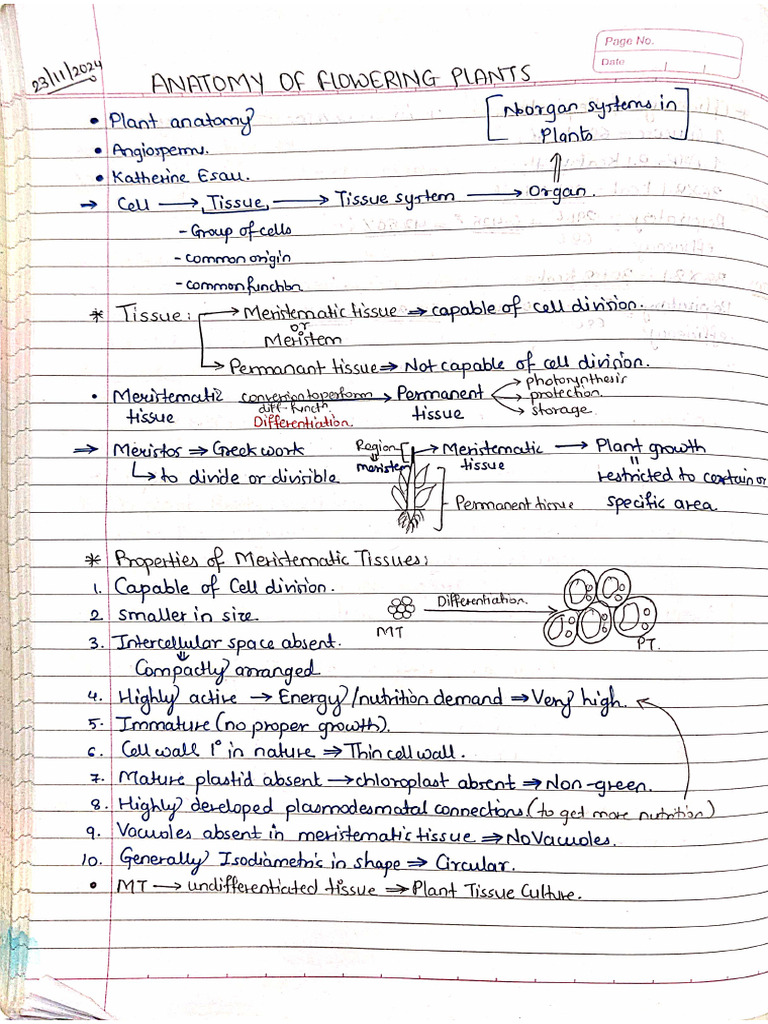 Page No.
Date
23/11/2024
ANATOMY OF FLOWERING PLANTS
• Plant anatomy
[No organ systems in
Plants]
• Angiosperms.
• Katherine Esau.
→ Cell → Tissue → Tissue system → Organ.
- Group of cells
- common origin
- common function
* Tissue: → Meristematic tissue ⇒ capable of cell division.
or
Meristem
→ Permanant tissue ⇒ Not capable of cell division.
• Meristematic tissue conversion to perform diff. functn Differentiation. → Permanent tissue → photosynthesis
→ protection.
→ storage.
⇒ Meristos ⇒ Greek work
↳ to divide or divisible
Region ⇓ meristem → Meristematic tissue → Plant growth
" restricted to certain or
specific area
Permanent tissue
* Properties of Meristematic Tissues:
1. Capable of Cell division.
2. smaller in size.
MT Differentiation. → PT.
3. Intercellular space absent.
⇓
Compactly arranged
4. Highly active → Energy/nutrition demand ⇒ Very high.
5. Immature (no proper growth).
6. Cell wall 1° in nature ⇒ Thin cell wall.
7. Mature plastid absent → chloroplast absent ⇒ Non-green.
8. Highly developed plasmodesmatal connections (to get more nutrition)
9. Vacuoles absent in meristematic tissue ⇒ No Vacuoles.
10. Generally Isodiametric in shape ⇒ Circular.
• MT → undifferentiated tissue ⇒ Plant Tissue Culture.